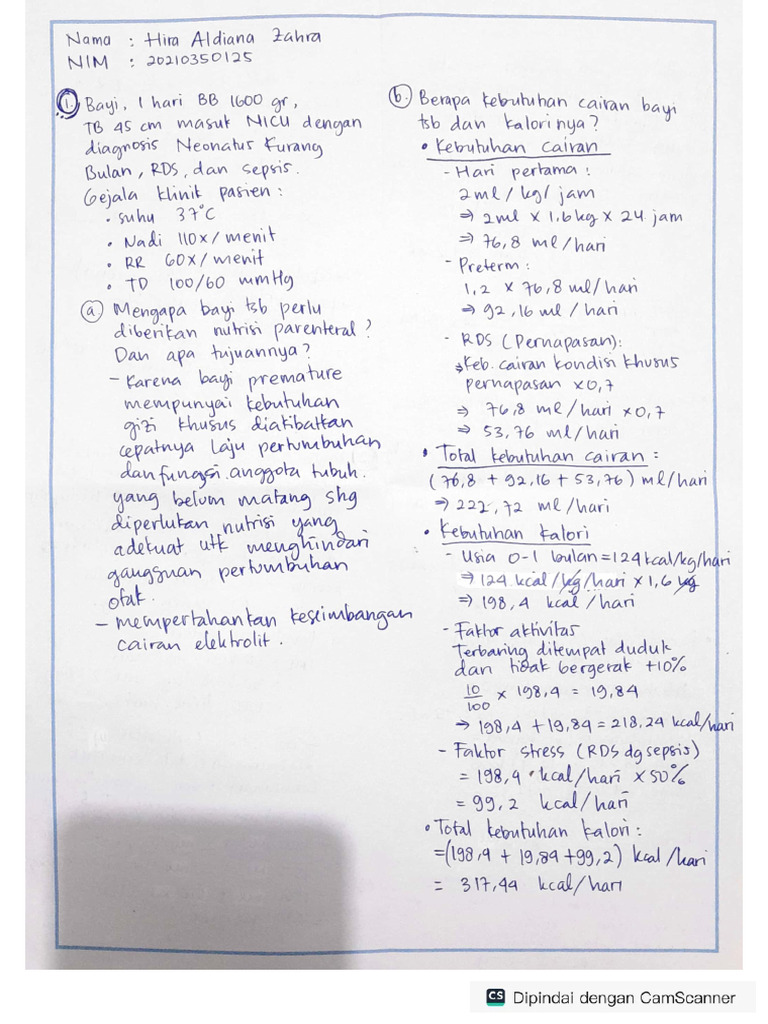 Nama : Hira Aldiana Zahra
NIM : 20210350125
1. Bayi, 1 hari BB 1600 gr,
TB 45 cm masuk NICU dengan
diagnosis Neonatus Kurang
Bulan, RDS, dan sepsis.
Gejala klinik pasien :
• suhu 37°C
• Nadi 110x/menit
• RR 60x/menit
• TD 100/60 mmHg
a. Mengapa bayi tsb perlu
diberikan nutrisi parenteral ?
Dan apa tujuannya ?
- Karena bayi premature
mempunyai kebutuhan
gizi khusus diakibatkan
cepatnya laju pertumbuhan
dan fungsi anggota tubuh.
yang belum matang shg
diperlukan nutrisi yang
adekuat utk menghindari
gangguan pertumbuhan
otak.
- mempertahankan keseimbangan
cairan elektrolit.
b. Berapa kebutuhan cairan bayi
tsb dan kalorinya ?
• Kebutuhan Cairan
- Hari pertama :
2ml / kg / jam
⇒ 2ml x 1,6 kg x 24 jam
⇒ 76,8 ml/hari
- Preterm :
1,2 x 76,8 ml/hari
⇒ 92,16 ml / hari
- RDS (Pernapasan) :
Keb. cairan kondisi khusus
pernapasan x 0,7
⇒ 76,8 ml/hari x 0,7
⇒ 53,76 ml/hari
• Total kebutuhan cairan :
(76,8 + 92,16 + 53,76) ml/hari
⇒ 222,72 ml/hari
• Kebutuhan kalori
- Usia 0-1 bulan = 124 kcal/kg/hari
⇒ 124 kcal/kg/hari x 1,6 kg
⇒ 198,4 kcal/hari
- Faktor aktivitas
Terbaring ditempat duduk
dan tidak bergerak +10%
10/100 x 198,4 = 19,84
→ 198,4 + 19,84 = 218,24 kcal/hari
- Faktor stress (RDS dg sepsis)
= 198,4 kcal/hari x 50%
= 99,2 kcal/hari
• Total kebutuhan kalori :
= (198,4 + 19,84 + 99,2) kcal/hari
= 317,44 kcal/hari
CS Dipindai dengan CamScanner